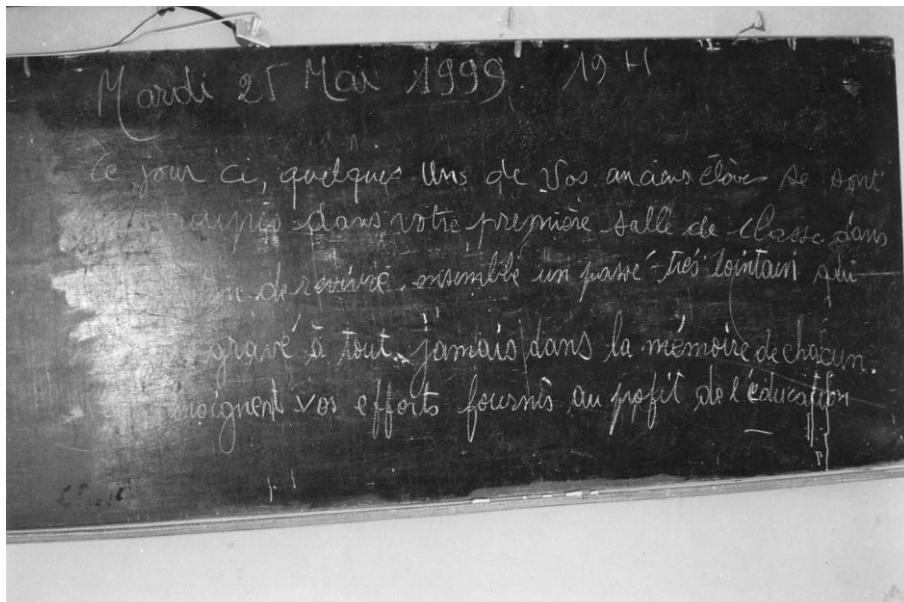 Mardi 25 Mai 1999 19 H
Ce jour ci, quelques Uns de Vos anciens élèves se sont
dans votre première salle de classe dans
de revivre ensemble un passé très lointain qui
gravé à tout jamais dans la mémoire de chacun.
moignent vos efforts fournis au profit de l'éducation